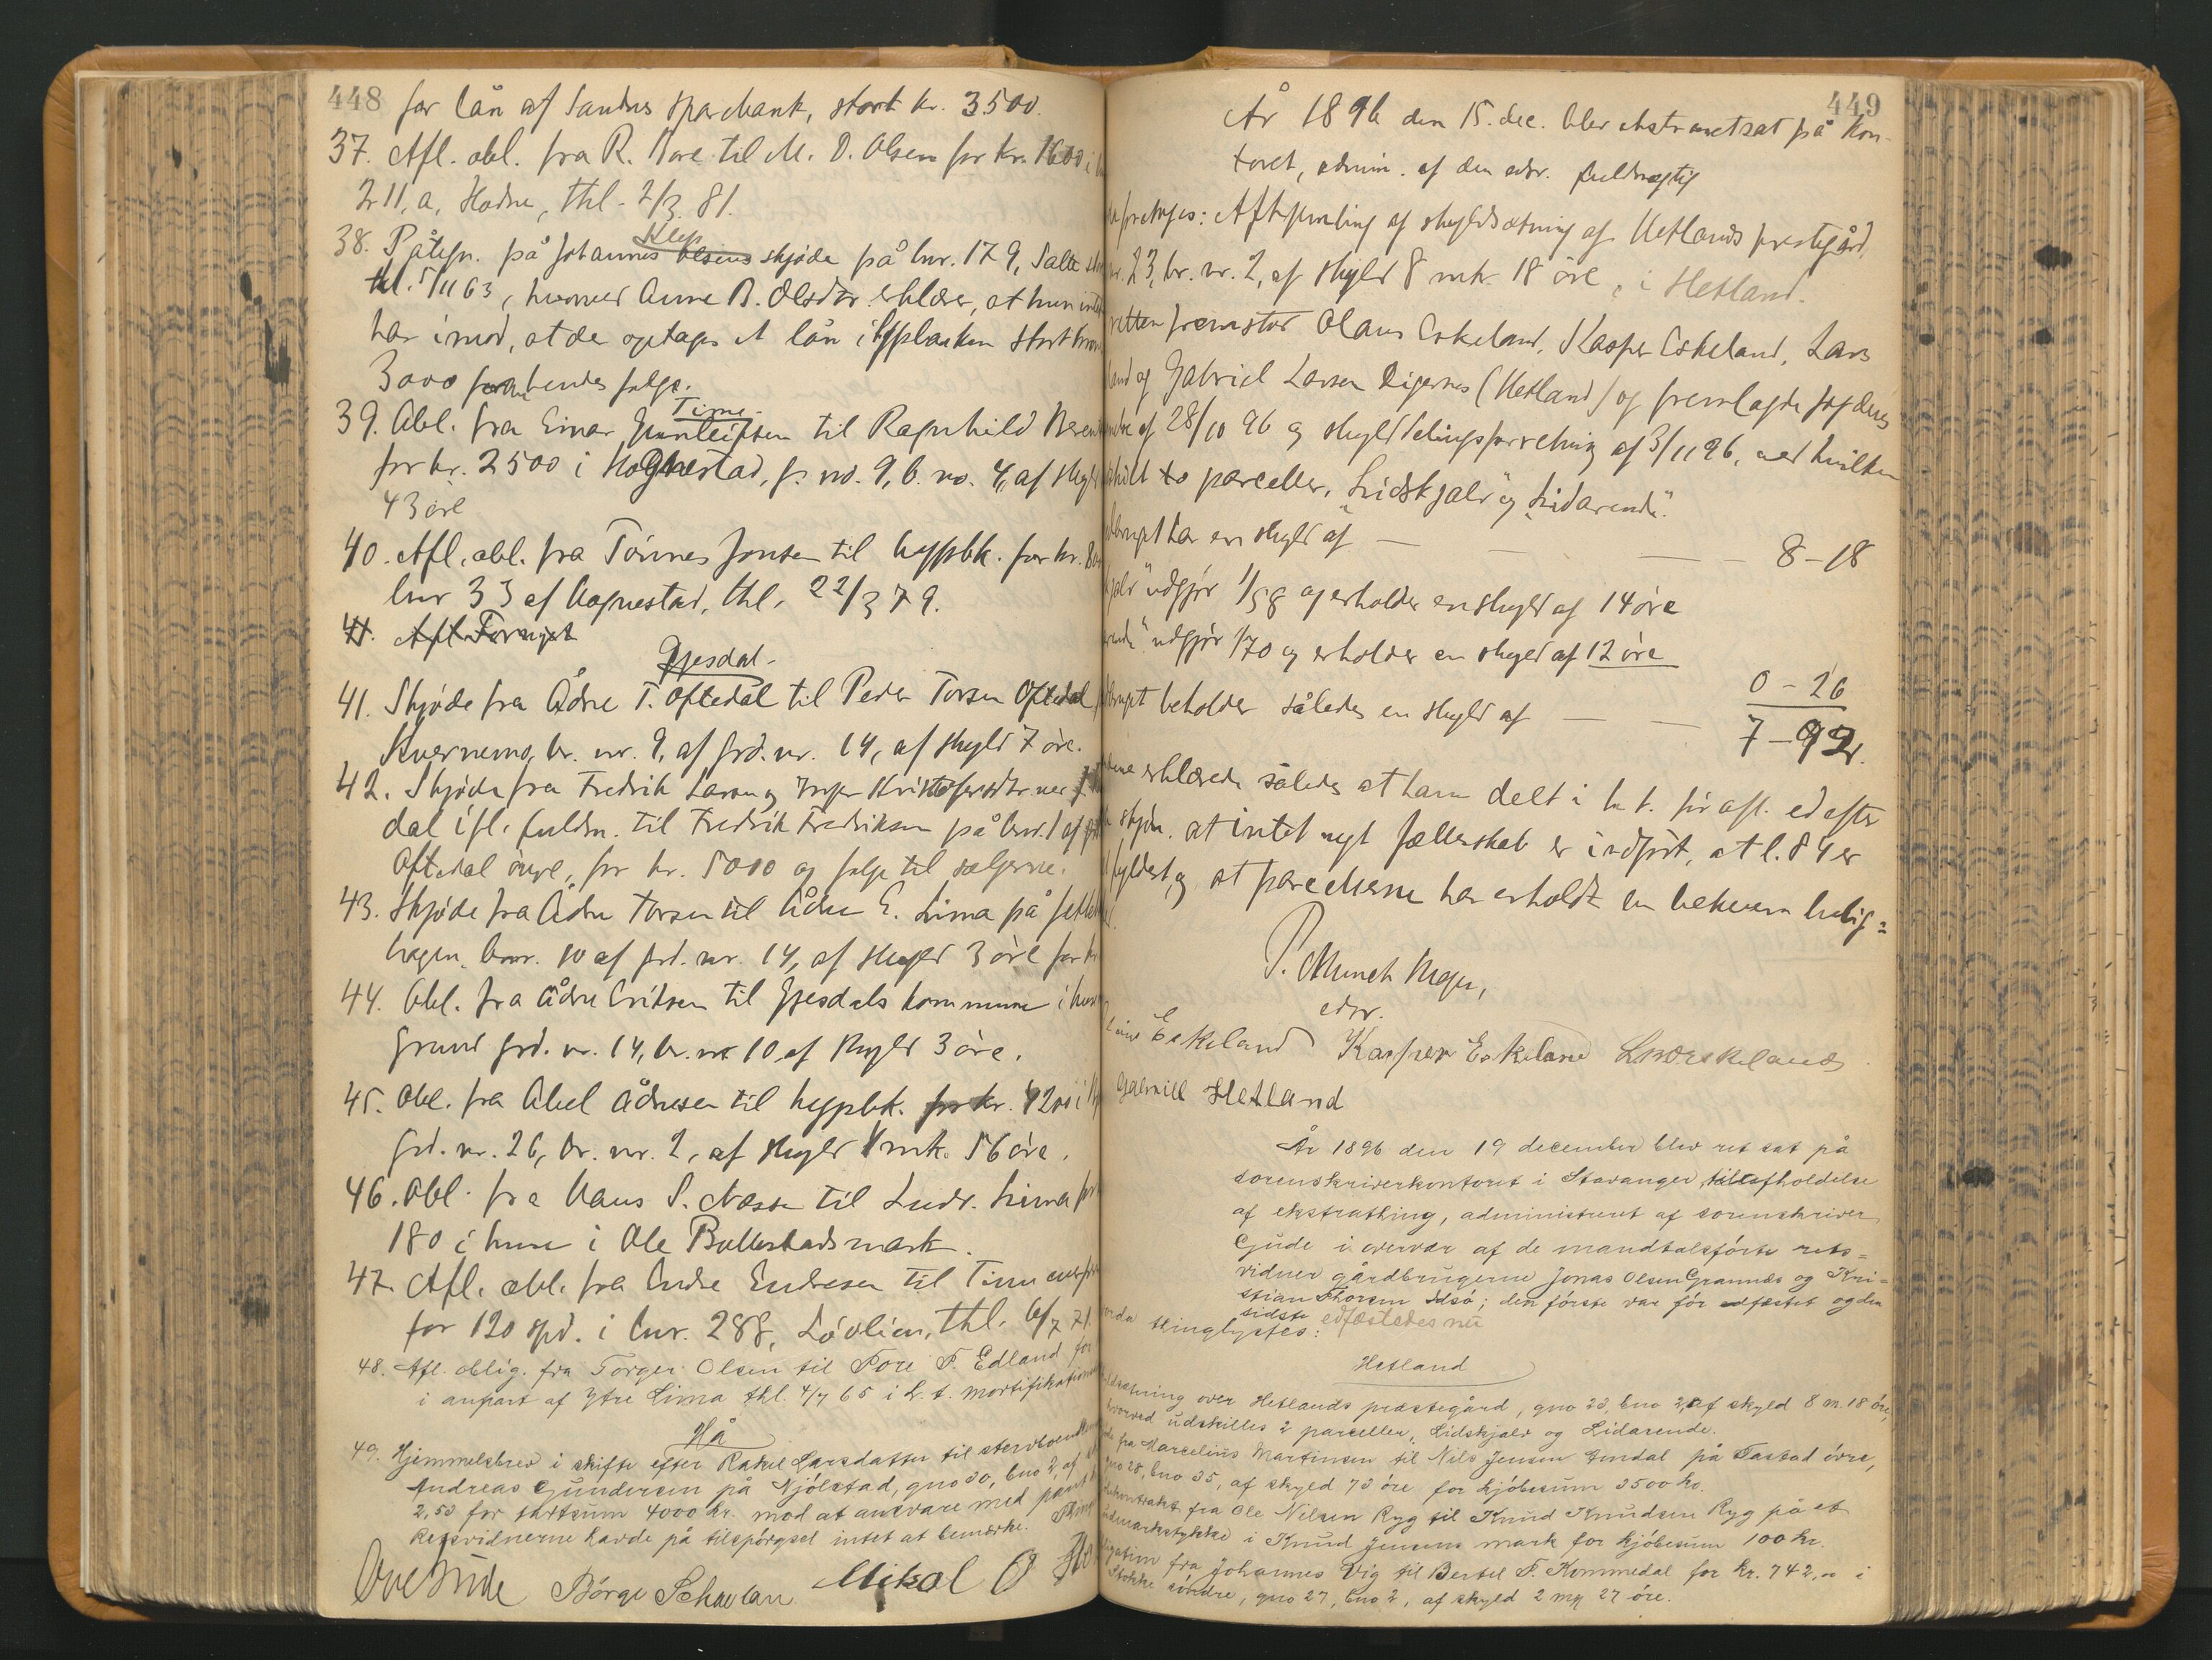 448
for lån af Sandnes sparebank, stort kr. 3500.
37. Afl. obl. fra R. Bore til M. D. Olsen for kr. 1600 i
211, a, Hodne, thl. 2/3 81.
Klep
38. Påtegn. på Johannes Olsens skjøde på lnr. 179, Salte
thl. 5/11 63, hvorved Anne B. Olsdtr. erklærer, at hun intet
har imod, at der optages et lån i hypbanken stort kron
3000 foran hendes folge.
Time
39. Obl. fra Einar Gunleifsen til Ragnhild
for kr. 2500 i Hognestad, g. no. 9, b. no. 4, af skyld
43 øre
40. Afl. obl. fra Tønnes Jonsen til hypbk. for kr.
lnr 33 af Hognestad, thl. 22/3 79.
41. Afl. Fornyet
Gjesdal
41. Skjøde fra Ådne T. Oftedal til Peder Torsen Oftedal
Kvernemo, br. nr. 9, af grd. nr. 14, af skyld 7 øre.
42. Skjøde fra Fredrik Larsen og Inger Kristofersdtr.
dal ifl. fuldm. til Fredrik Fredriksen på brnr. 1 af
Oftedal øvre, for kr. 5000 og folge til sælgerne.
43. Skjøde fra Ådne Torsen til Ådne E. Lima på
hagen, bnr. 10 af grd. nr. 14, af skyld 3 øre for kr
44. Obl. fra Ådne Eriksen til Gjesdals kommune i hus
grund grd. nr. 14, br. nr 10, af skyld 3 øre.
45. Obl. fra Abel Ådnesen til hypbk. for kr. 1200 i
grd. nr. 26, br. nr. 2, af skyld 1 mk. 56 øre.
46. Obl. fra Hans S. Næsse til Ludv. Lima for
180 i huse i Ole Bollestads mark.
47. Afl. obl. fra Endre Endresen til Time
for 120 spd. i lnr. 288, Løvlien, thl. 6/7 71.
48. Afl. oblig. fra Torger Olsen til Tore T. Edland for
i anpart af Ytre Lima thl. 4/7 65 i h. t. mortifikation
Hå
49. Hjemmelsbrev i skifte efter Rakel Larsdatter til
Andreas Gundersen på Njølstad, gno 30, bno 2, af
2,53 for takstsum 4000 kr. mod at ansvare med pant
Retsvidnerne havde på tilspørgsel intet at bemærke.
Ove Gude Børge Schavlan Mikal O
449
År 1896 den 15. dec. blev ekstraretsat på kon-
toret, admin. af den edsv. fuldmægtig
foretoges: Afhjemling af skyldsætning af Hetlands prestegård,
nr. 23, br. nr. 2, af skyld 8 mk. 18 øre, i Hetland.
retten fremstod Olaus Eskeland, Kasper Eskeland, Lars
land og Gabriel Larsen Digernes (Hetland) og fremlagde fogdens
af 28/10 96 og skylddelingsforretning af 3/11 96, ved hvilken
skilt to parceller, "Lidskjalv" og "Lidarende".
bruget har en skyld af — — — — 8-18
udgjør 1/58 og erholder en skyld af 14 øre
rende" udgjør 1/70 og erholder en skyld af 12 øre
0-26
bruget beholder således en skyld af — — 7-92.
erklærede således at have delt i h. t. før afl. ed efter
skjøn, at intet nyt fællesskab er indført, at l. § 4 er
fyldest, og at parcellerne har erholdt en bekvem belig=
P. Munch Meyer,
edsv.
Eskeland Kasper Eskeland Lars Eskeland
Gabriell Hetland
År 1896 den 19 december blev ret sat på
sorenskriverkontoret i Stavanger til afholdelse
af ekstrathing, administreret af sorenskriver
Gude i overvær af de mandtalsførte rets=
vidner gårdbrugerne Jonas Olsen Grannæs og Kri=
stian Thorsen Idsø; den første var før edfæstet og den
sidste edfæstedes nu
thinglystes:
Hetland
ldsætning over Hetlands præstegård, gno 23, bno 2, af skyld 8 m. 18 øre,
hvorved udskilles 2 parceller, Lidskjalv og Lidarende.
fra Marcelius Martinsen til Nils Jensen Amdal på Tastad øvre,
gno 28, bno 35, af skyld 73 øre for kjøbesum 3500 kr.
kontrakt fra Ole Nilsen Ryg til Knud Knudsen Ryg på et
udmarkstykke i Knud Jensens mark for kjøbesum 100 kr.
gation fra Johannes Vig til Bertel T. Kommedal for kr. 742,00 i
Stokke søndre, gno 27, bno 2, af skyld 2 mk 27 øre.